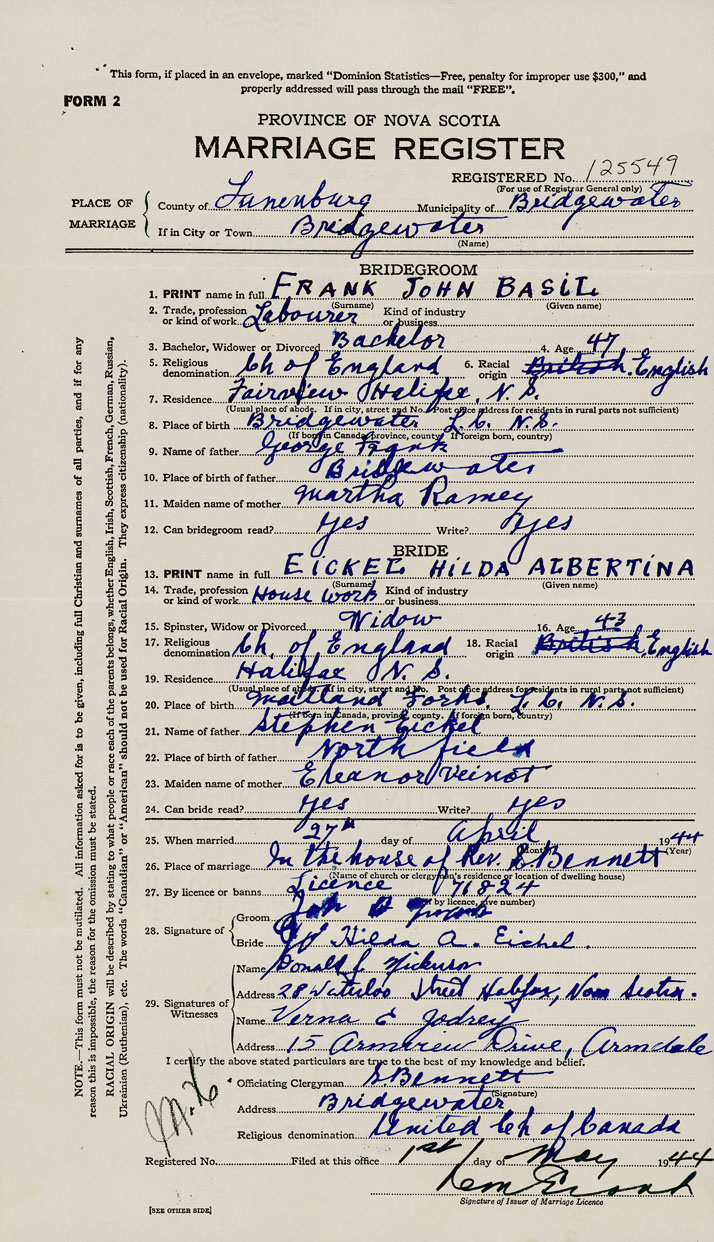 This form, if placed in an envelope, marked "Dominion Statistics—Free, penalty for improper use $300," and
properly addressed will pass through the mail "FREE".
FORM 2
PROVINCE OF NOVA SCOTIA
MARRIAGE REGISTER
REGISTERED No. 125549
(For use of Registrar General only)
PLACE OF MARRIAGE
County of Lunenburg Municipality of Bridgewater
If in City or Town Bridgewater
(Name)
BRIDEGROOM
1. PRINT name in full FRANK JOHN BASIL
(Surname) (Given name)
2. Trade, profession or kind of work Labourer Kind of industry or business
3. Bachelor, Widower or Divorced Bachelor 4. Age 47
5. Religious denomination Ch of England 6. Racial origin British English
7. Residence Fairview Halifax, N. S.
(Usual place of abode. If in city, street and No. Post office address for residents in rural parts not sufficient)
8. Place of birth Bridgewater L. C. N.S.
(If born in Canada, province, county. If foreign born, country)
9. Name of father George Frank
10. Place of birth of father Bridgewater
11. Maiden name of mother Martha Ramey
12. Can bridegroom read? Yes Write? Yes
BRIDE
13. PRINT name in full EICKEL HILDA ALBERTINA
(Surname) (Given name)
14. Trade, profession or kind of work House work Kind of industry or business
15. Spinster, Widow or Divorced Widow 16. Age 43
17. Religious denomination Ch. of England 18. Racial origin British English
19. Residence Halifax N. S.
(Usual place of abode. If in city, street and No. Post office address for residents in rural parts not sufficient)
20. Place of birth Maitland Forks, L. C. N. S.
(If born in Canada, province, county. If foreign born, country)
21. Name of father Stephen Eickel
22. Place of birth of father Northfield
23. Maiden name of mother Eleanor Veinot
24. Can bride read? Yes Write? Yes
25. When married 27th day of April 1944
(Month) (Year)
26. Place of marriage In the house of Rev. Bennett
(Name of church or clergyman's residence or location of dwelling house)
27. By licence or banns Licence 71824
(If by licence, give number)
28. Signature of
Groom
Bride Hilda A. Eichel.
29. Signatures of Witnesses
Name Donald
Address 28 Waterloo Street Halifax, Nova Scotia.
Name Verna E Godrey
Address 15 Armcrew Drive, Armdale
I certify the above stated particulars are true to the best of my knowledge and belief.
Officiating Clergyman Bennett
(Signature)
Address Bridgewater
Religious denomination United Ch of Canada
Registered No. Filed at this office 1st day of May 1944
Signature of Issuer of Marriage Licence
[SEE OTHER SIDE]
NOTE.—This form must not be mutilated. All information asked for is to be given, including full Christian and surnames of all parties, and if for any
reason this is impossible, the reason for the omission must be stated.
RACIAL ORIGIN will be described by stating to what people or race each of the parents belongs, whether English, Irish, Scottish, French, German, Russian,
Ukrainian (Ruthenian), etc. The words "Canadian" or "American" should not be used for Racial Origin. They express citizenship (nationality).